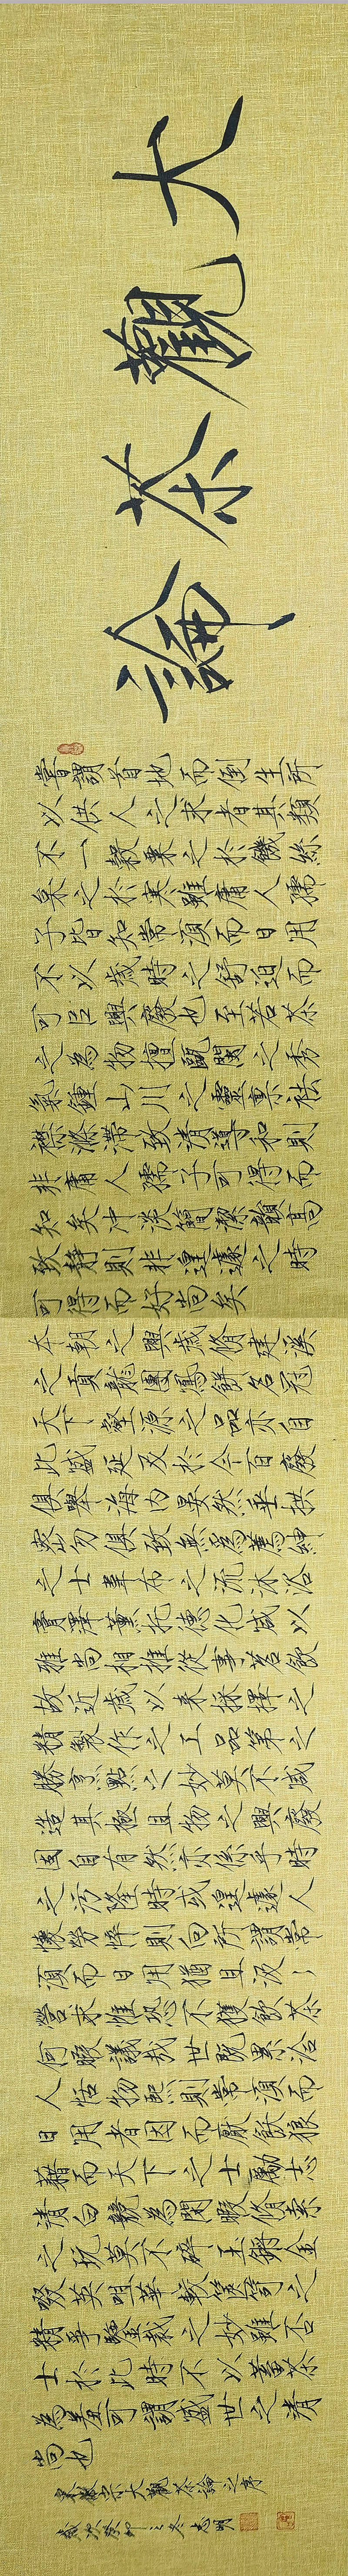 大觀茶論
嘗謂首地而倒生所
以供人之求者其類
不一穀粟之於饑絲
枲之於寒雖庸人孺
子皆知常須而日用
不以歲時之舒迫而
可以興廢也至若茶
之為物擅甌閩之秀
氣鍾山川之靈稟祛
襟滌滯致清導和則
非庸人孺子可得而
知矣冲淡簡潔韻高
致靜則非遑遽之時
可得而好尚矣
本朝之興歲脩建溪
之貢龍團鳳餅名冠
天下壑源之品亦自
此盛延及於今百廢
俱舉海內晏然垂拱
密勿俱致無為薦紳
之士韋布之流沐浴
膏澤薰托德化咸以
雅尚相推從事茗飲
故近歲以來採擇之
精製作之工品第之
勝烹點之妙莫不咸
造其極且物之興廢
固自有然亦係乎時
之污隆時或遑遽人
懷勞悴則向所謂常
須而日用猶且汲汲
營求惟恐不獲飲茶
何暇議哉世既累洽
人恬物熙則常須而
日用者因而厭飫狼
藉而天下之士勵志
清白競為閒暇脩索
之玩莫不碎玉鏘金
啜英咀華較篋笥之
精爭鑒裁之妙雖否
士於此時不以蓄茶
為羞可謂盛世之清
尚也
宋徽宗大觀茶論之序
歲次癸卯之冬志明